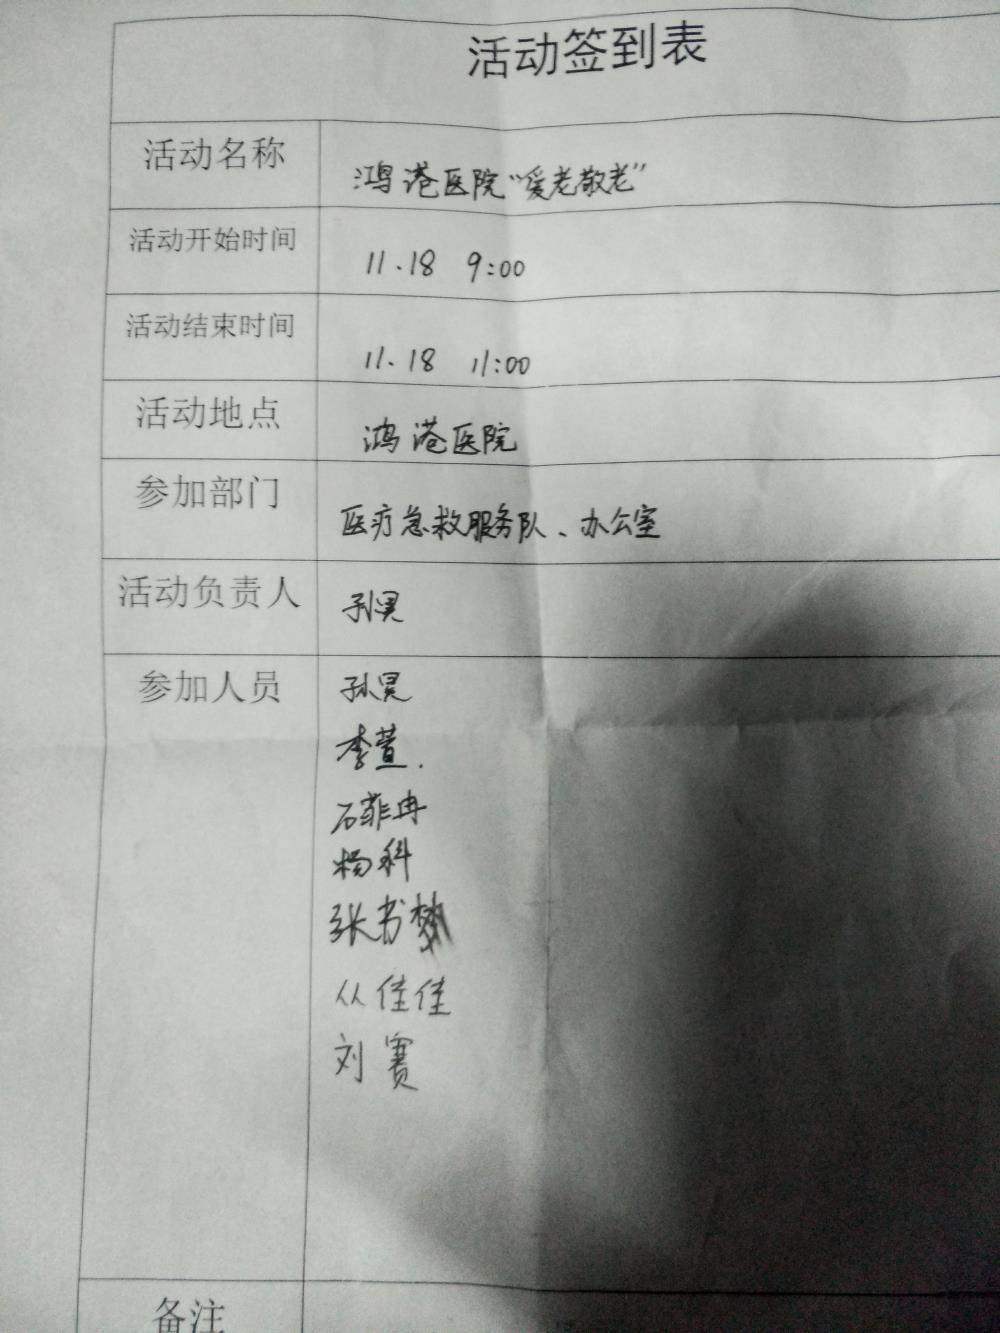 活动签到表
活动名称 鸿港医院“爱老敬老”
活动开始时间 11.18 9:00
活动结束时间 11.18 11:00
活动地点 鸿港医院
参加部门 医疗急救服务队、办公室
活动负责人 孙昊
参加人员 孙昊
李萱.
石菲冉
杨科
张书梦
从佳佳
刘赛
备注